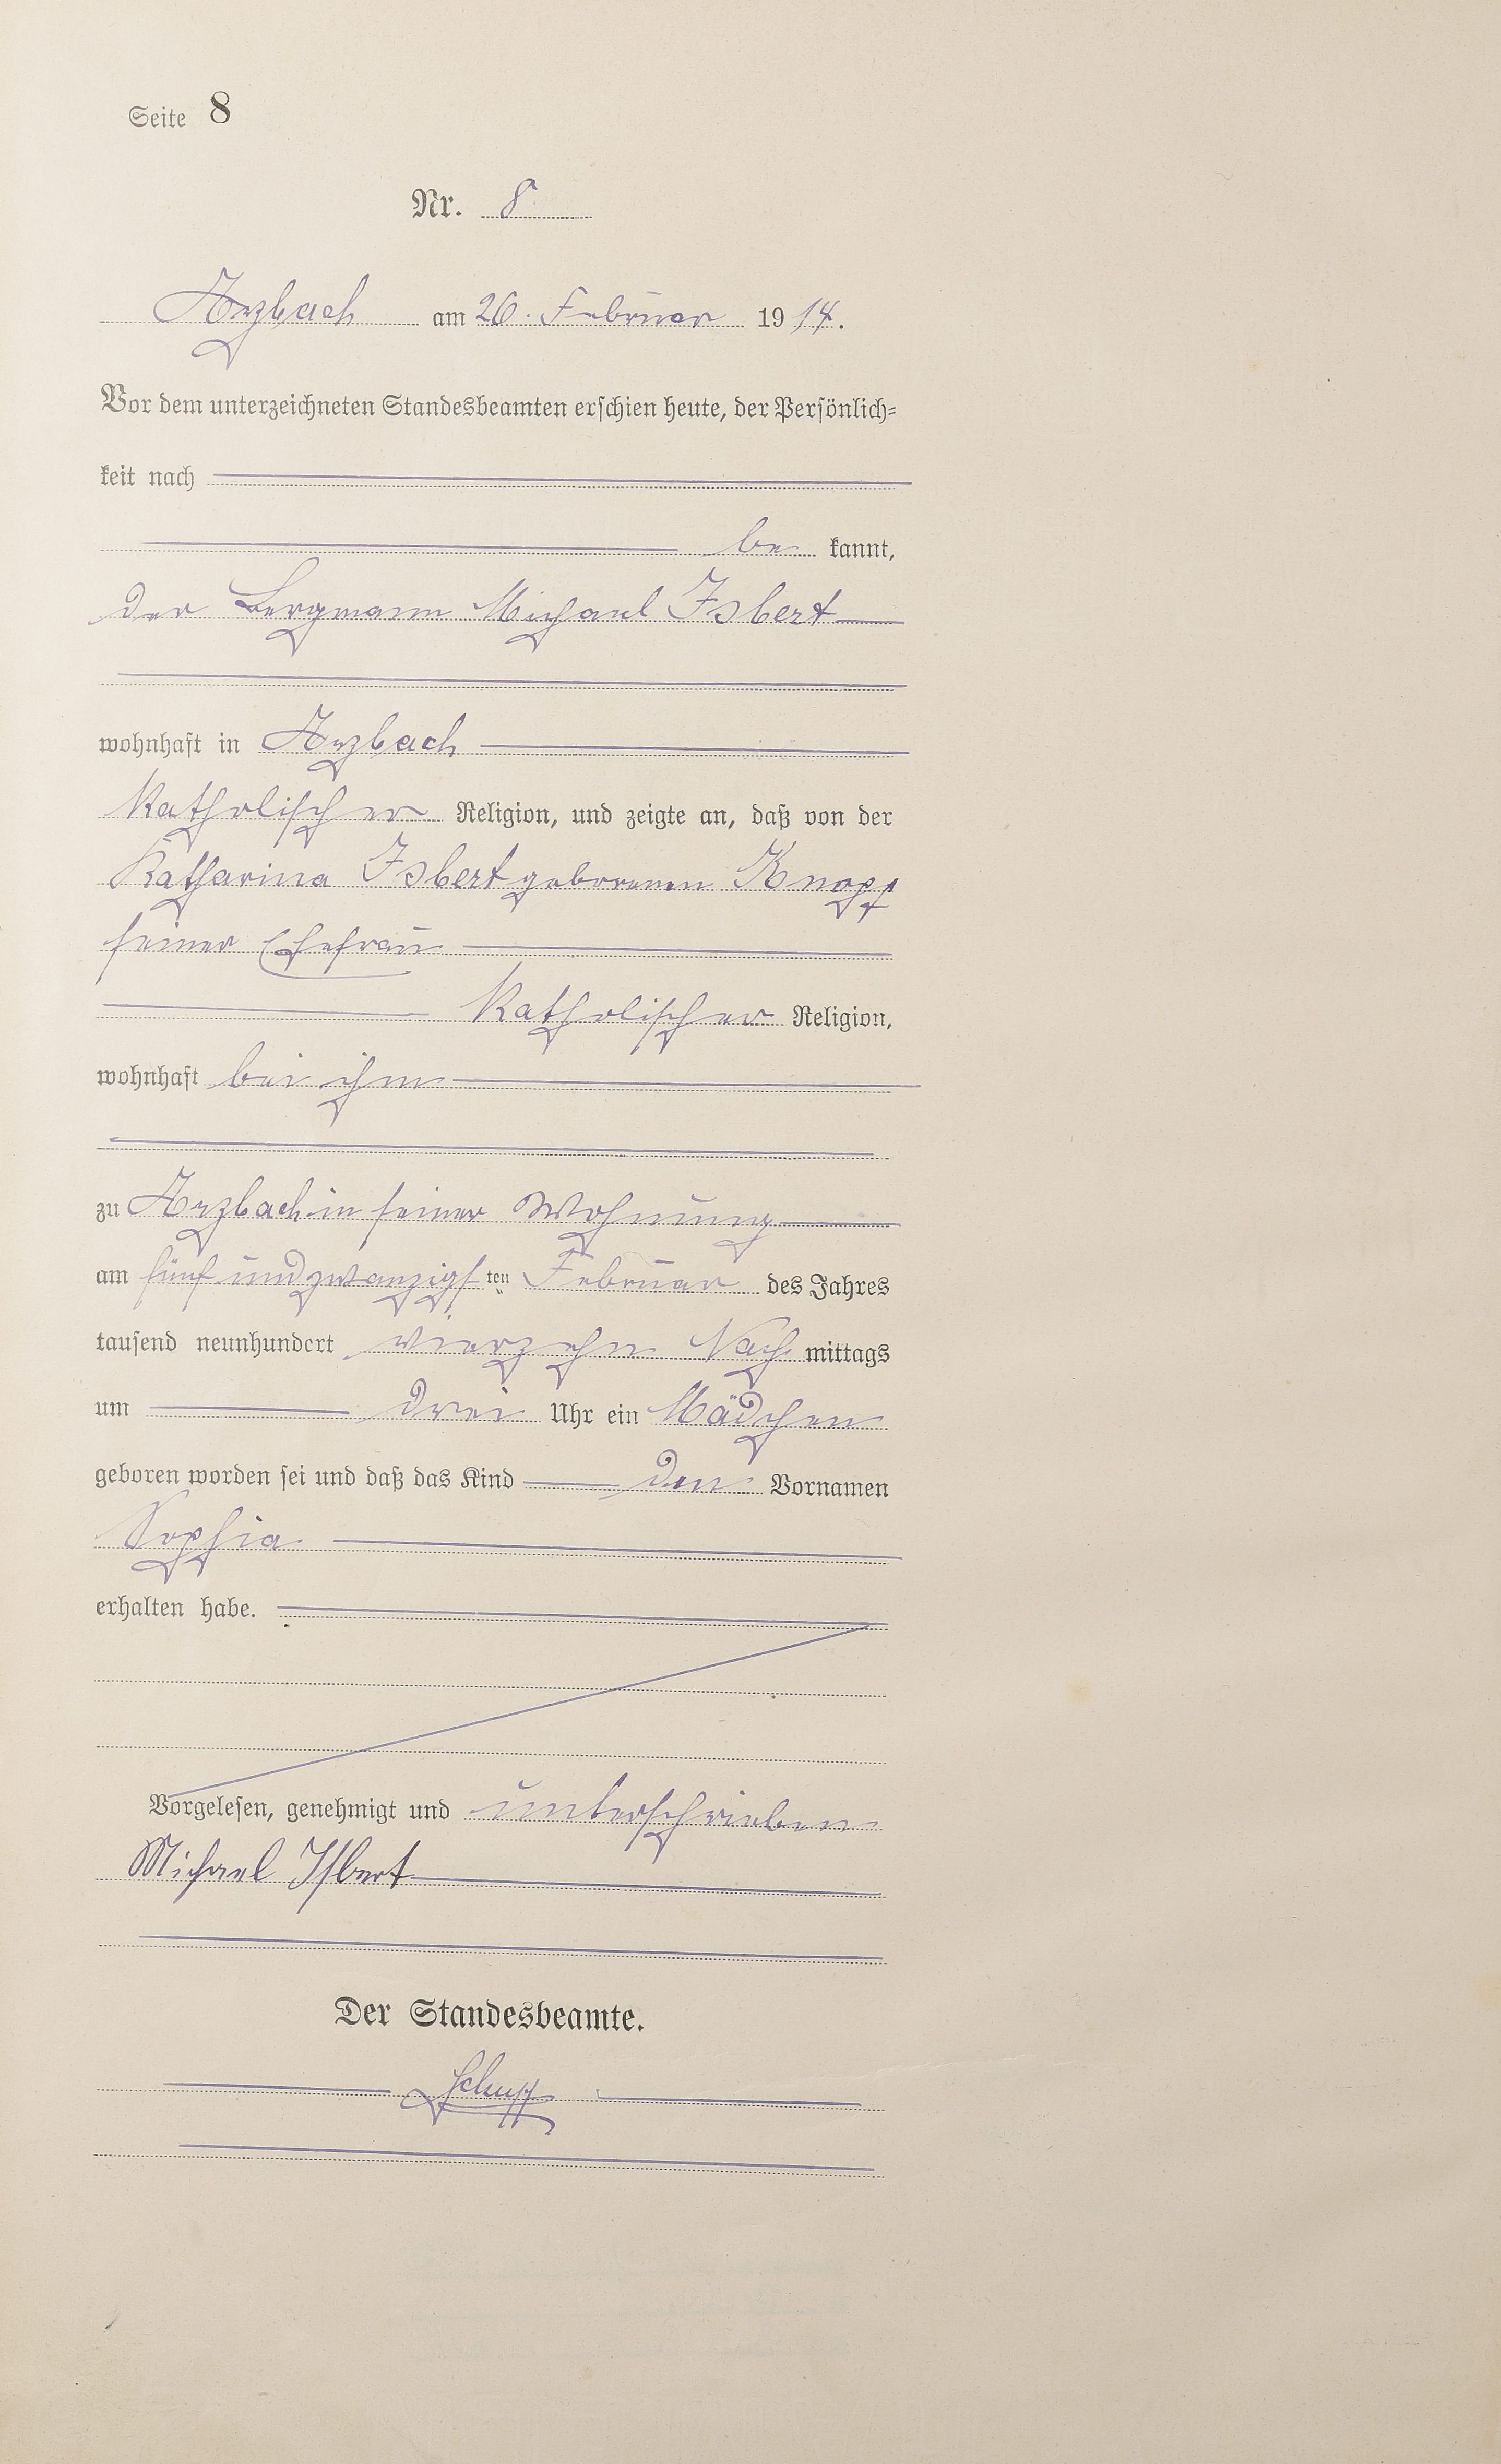 Seite 8
Nr. 8
Arzbach am 26. Februar 1914.
Vor dem unterzeichneten Standesbeamten erschien heute, der Persönlich=
keit nach
be kannt,
der Bergmann Michael Isbert
wohnhaft in Arzbach
Katholischer Religion, und zeigte an, daß von der
Katharina Isbert geborenen Knopf
seiner Ehefrau
Katholischer Religion,
wohnhaft bei ihm
zu Arzbach in seiner Wohnung
am fünf und zwanzigsten Februar des Jahres
tausend neunhundert vierzehn Nachmittags
um drei Uhr ein Mädchen
geboren worden sei und daß das Kind den Vornamen
Sophia
erhalten habe.
Vorgelesen, genehmigt und unterschrieben
Michael Isbert
Der Standesbeamte.
Schupp